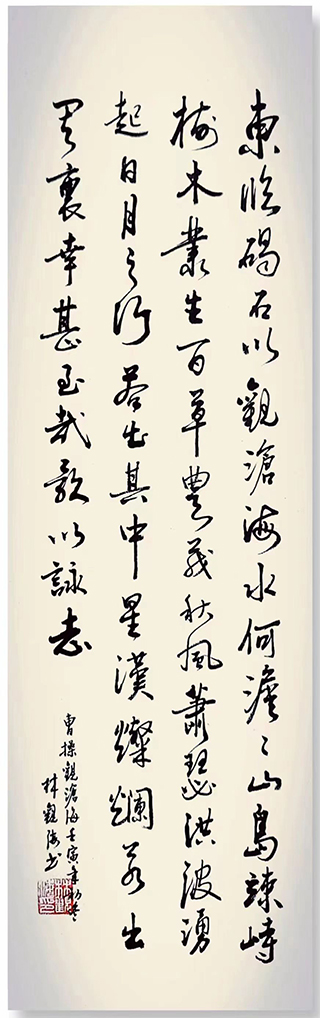 東臨碣石以觀滄海水何澹々山島竦峙
樹木叢生百草豐茂秋風蕭瑟洪波湧
起日月之行若出其中星漢燦爛若出
其裏幸甚至哉歌以詠志
曹操觀滄海壬寅年初冬
林觀海书